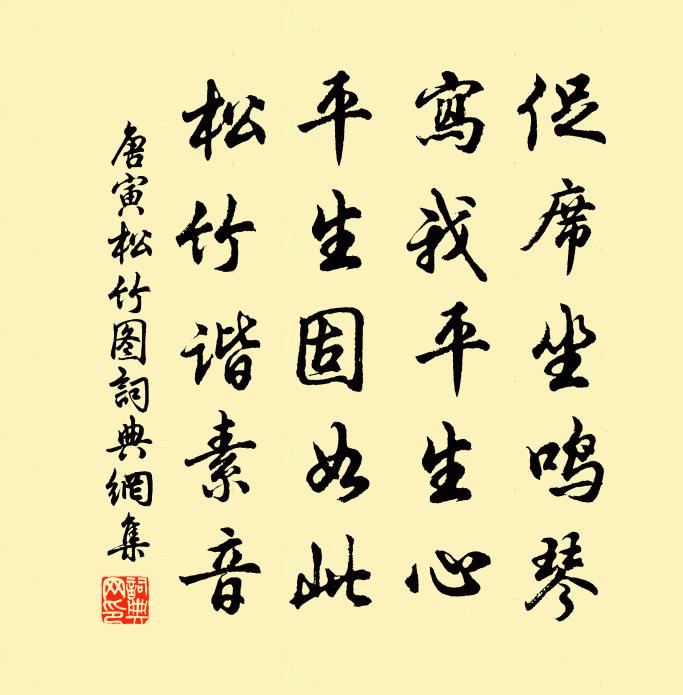 促席坐鳴琴
寫我平生心
平生固如此
松竹谐素音
唐寅松竹图詞典網集
詞典网印